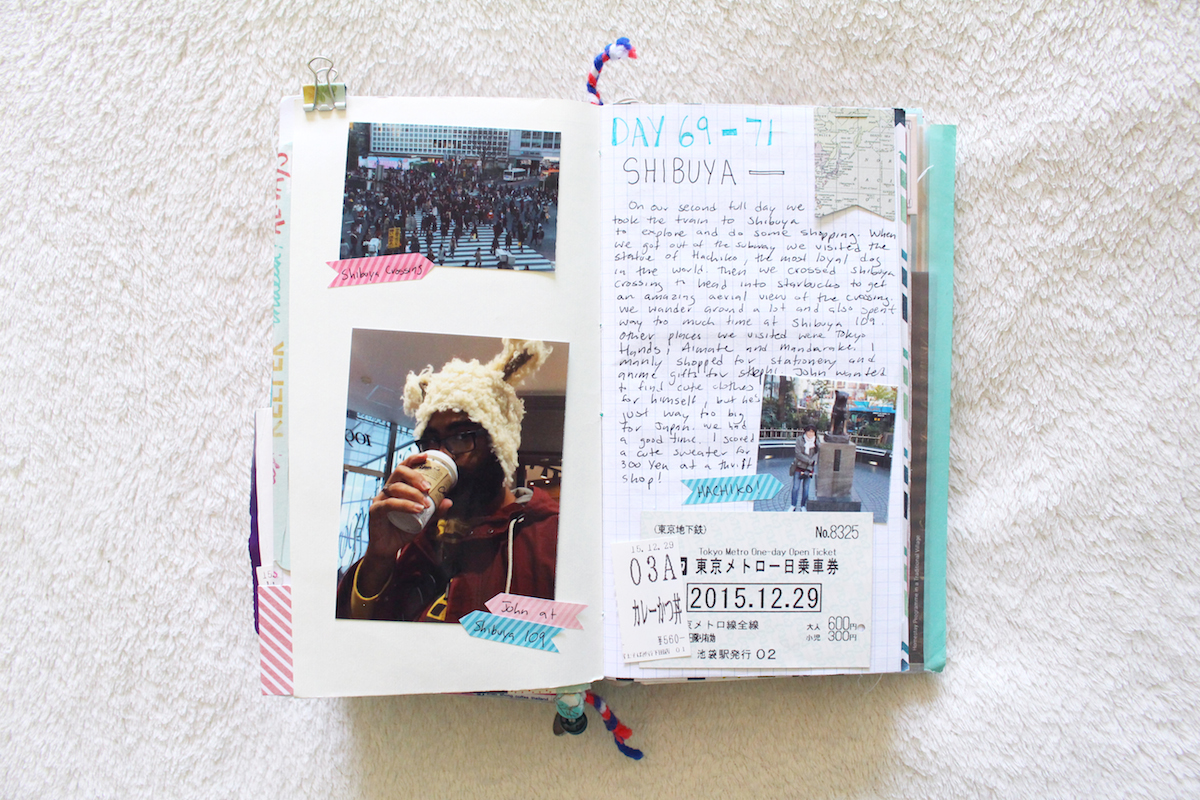 Shibuya Crossing
John at
Shibuya 109
DAY 69-71
SHIBUYA —
On our second full day we
took the train to Shibuya
to explore and do some shopping. When
we got out of the subway we visited the
statue of Hachiko, the most loyal dog
in the world. Then we crossed Shibuya
crossing to head into starbucks to get
an amazing aerial view of the crossing.
We wander around a lot and also spent
way too much time at Shibuya 109.
Other places we visited were Tokyo
Hands, Aimate and Mandarake. I
mainly shopped for stationery and
anime gifts for steph! John wanted
to find cute clothes
for himself, but he's
just way too big
for Japan. We had
a good time. I scored
a cute sweater for
300 Yen at a thrift
shop!
HACHIKO!
(東京地下鉄) No.8325
Tokyo Metro One-day Open Ticket
東京メトロ一日乗車券
2015.12.29
メトロ線全線
大人 600円
小児 300円
池袋駅発行 02
15.12.29
03A
カレーかつ丼
¥560-
KEEPER